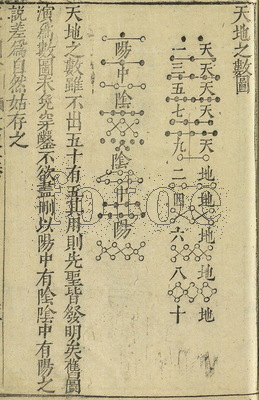 天地之數圖
天一 天三 天五 天七 天九 地二 地四 地六 地八 地十
陽中陰 陰中陽
天地之數雖不出五十有五其用則先聖皆發明矣舊圖
演爲數圖未免穿鑿不欲盡刪以陽中有陰陰中有陽之
說差爲自然姑存之